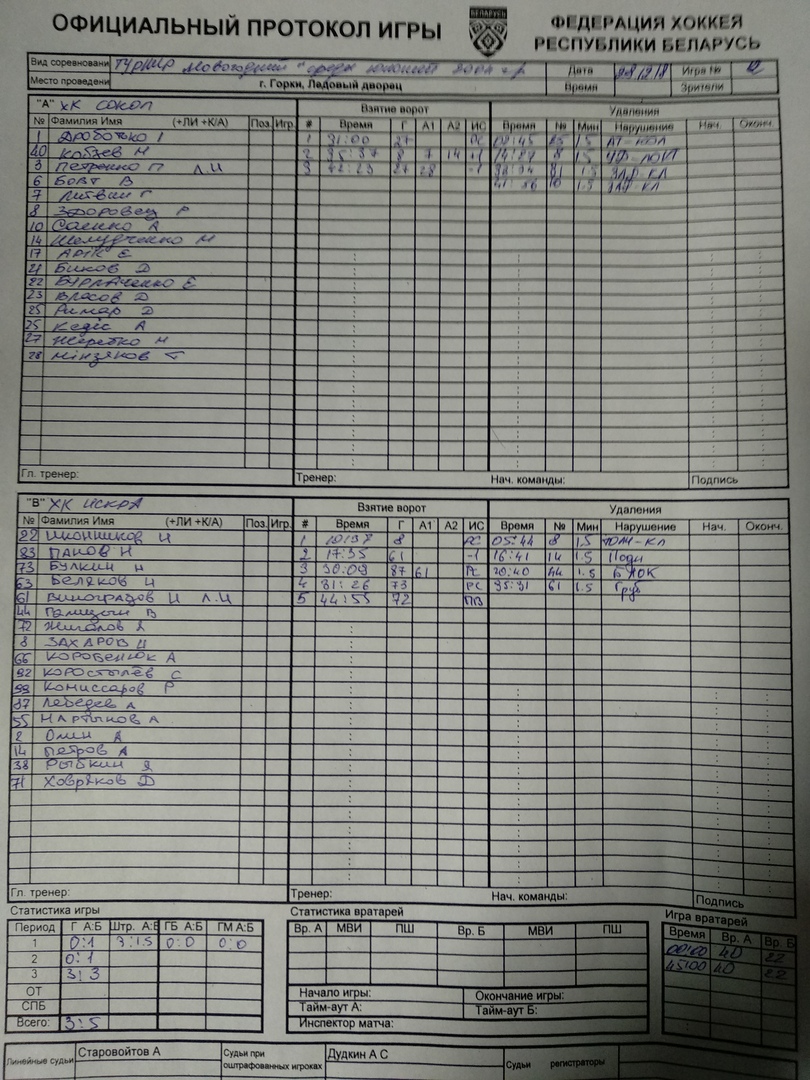 ОФИЦИАЛЬНЫЙ ПРОТОКОЛ ИГРЫ
БЕЛАРУСЬ
ФЕДЕРАЦИЯ ХОККЕЯ
РЕСПУБЛИКИ БЕЛАРУСЬ
Вид соревновани Турнир Новогодний " среди юношей Дата 28 12 18 Игра №
Место проведени г. Горки, Ледовый дворец Время Зрители
"А" ХК СОКОЛ Взятие ворот Удаления
№ Фамилия Имя (+ЛИ +К/А) Поз. Игр. # Время Г А1 А2 ИС Время № Мин Нарушение Нач. Оконч.
1 1 31:00 27 РС 1.5
40 Кобзев М 2 35:37 8 7 14 +1 8 1.5
3 Петренко П Л.И 3 42:23 27 28 -1 1.5
6 Бовт В 1.5
7 Литвин Г
8 Р
10 Саенко А
14 Шелудченко М
17 Е
21 Биков Д
22 Бурлаченко Е
23 Власов Д
25 Римар Д
25 А
27 Жеребко М
28 Мінзяков Т
Гл. тренер: Тренер: Нач. команды: Подпись
"В" ХК ИСКРА Взятие ворот Удаления
№ Фамилия Имя (+ЛИ +К/А) Поз. Игр. # Время Г А1 А2 ИС Время № Мин Нарушение Нач. Оконч.
22 Иконников И 1 8 РС 05:44 8 1.5
83 Панов Н 2 17:35 61 -1 16:41 14 1.5 Подн
73 Булкин Н 3 30:09 87 61 РС 20:40 44 1.5 БЛОК
63 Беляков И 4 31:26 73 РС 35:31 61 1.5 Груб
61 Виноградов И Л.И 5 44:55 72 ПВ
44 Галицын В
72 Жигалов Я
8 ЗАХАРОВ И
66 КОРОБЕНЮК А
92 КОРОСТЫЛЕВ С
99 Комиссаров Р
87 Лебедев А
55 Мартынов А
2 Олин Д
14 Петров А
38 Рыбкин Я
71 Ховряков Д
Гл. тренер: Тренер: Нач. команды: Подпись
Статистика игры
Период Г А:Б Штр. А:Б ГБ А:Б ГМ А:Б
1 0:1 3:1.5 0:0 0:0
2 0:1
3 3:3
ОТ
СПБ
Всего: 3:5
Статистика вратарей
Вр. А МВИ ПШ Вр. Б МВИ ПШ
Начало игры: Окончание игры:
Тайм-аут А: Тайм-аут Б:
Инспектор матча:
Игра вратарей
Время Вр. А Вр. Б
00:00 40 22
45:00 40 22
Линейные судьи Старовойтов А Судьи при оштрафованных игроках Дудкин А С Судьи регистраторы